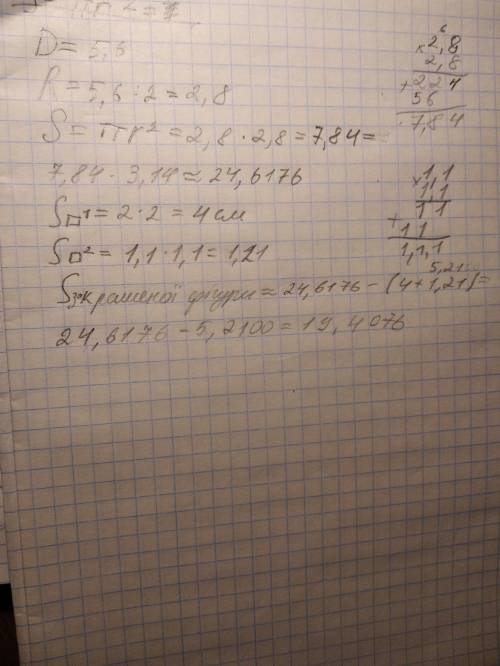 D = 5,6
R = 5,6 : 2 = 2,8
S = πr² = 2,8 · 2,8 = 7,84 =
7,84 · 3,14 ≈ 24,6176
S□¹ = 2 · 2 = 4 см
S□² = 1,1 · 1,1 = 1,21
Sзакрашеної фігури ≈ 24,6176 - (4 + 1,21) =
5,21
24,6176 - 5,2100 = 19,4076
6
× 2,8
2,8
+ 224
56
7,84
× 1,1
1,1
+ 11
11
1,1,1